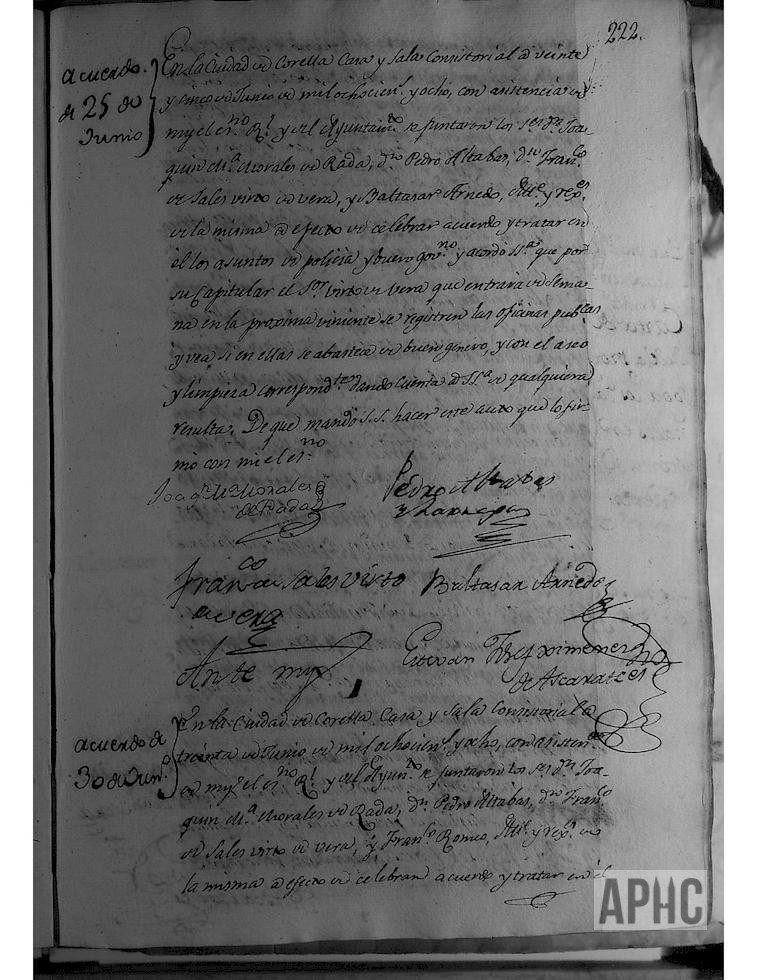 222.
acuerdo.
de 25 de
Junio
En la Ciudad de Corella Casa y Sala Consistorial a veinte
y cinco de Junio de mil ochocien.s y ocho, con asistencia de
my el es.no R.l y del Ayuntam.to se juntaron los S.res D.n Joa-
quin M.a Morales de Rada, d.n Pedro Altabas, d.n Fran.co
de Sales virto de vera, y Baltasar Arnedo, Alc.e y rex.es
de la misma a efecto de celebrar acuerdo y tratar en
el los asuntos de policia y buen gov.no y acordo SS.as que por
su Capitular el S.or virto de vera que entrara de Sema-
na en la proxima viniente se registren las oficinas pub.cas
y vea si en ellas se abastece de buen genero, y con el aseo
y limpieza correspond.te dando cuenta a SS.a de qualquiera
resulta. De que mandó S.S. hacer este auto que lo fir-
mó con mi el es.no
Joaq.n M.a Morales
de Rada
Pedro Altabas
Fran.co de Sales virto
de vera
Baltasar Arnedo
Ante my
Estevan Ximenez
de Ascarates
acuerdo de
30 de Jun.o
En la Ciudad de Corella Casa y Sala Consistorial a
treinta de Junio de mil ochocien.s y ocho, con asisten.cia
de my el es.no R.l y del Ayun.to se juntaron los S.res D.n Joa-
quin M.a Morales de Rada, d.n Pedro Altabas, d.n Fran.co
de Sales virto de vera, y Fran.co Romeo, Alc.e y rex.es de
la misma a efecto de celebrar acuerdo y tratar en el
APHC